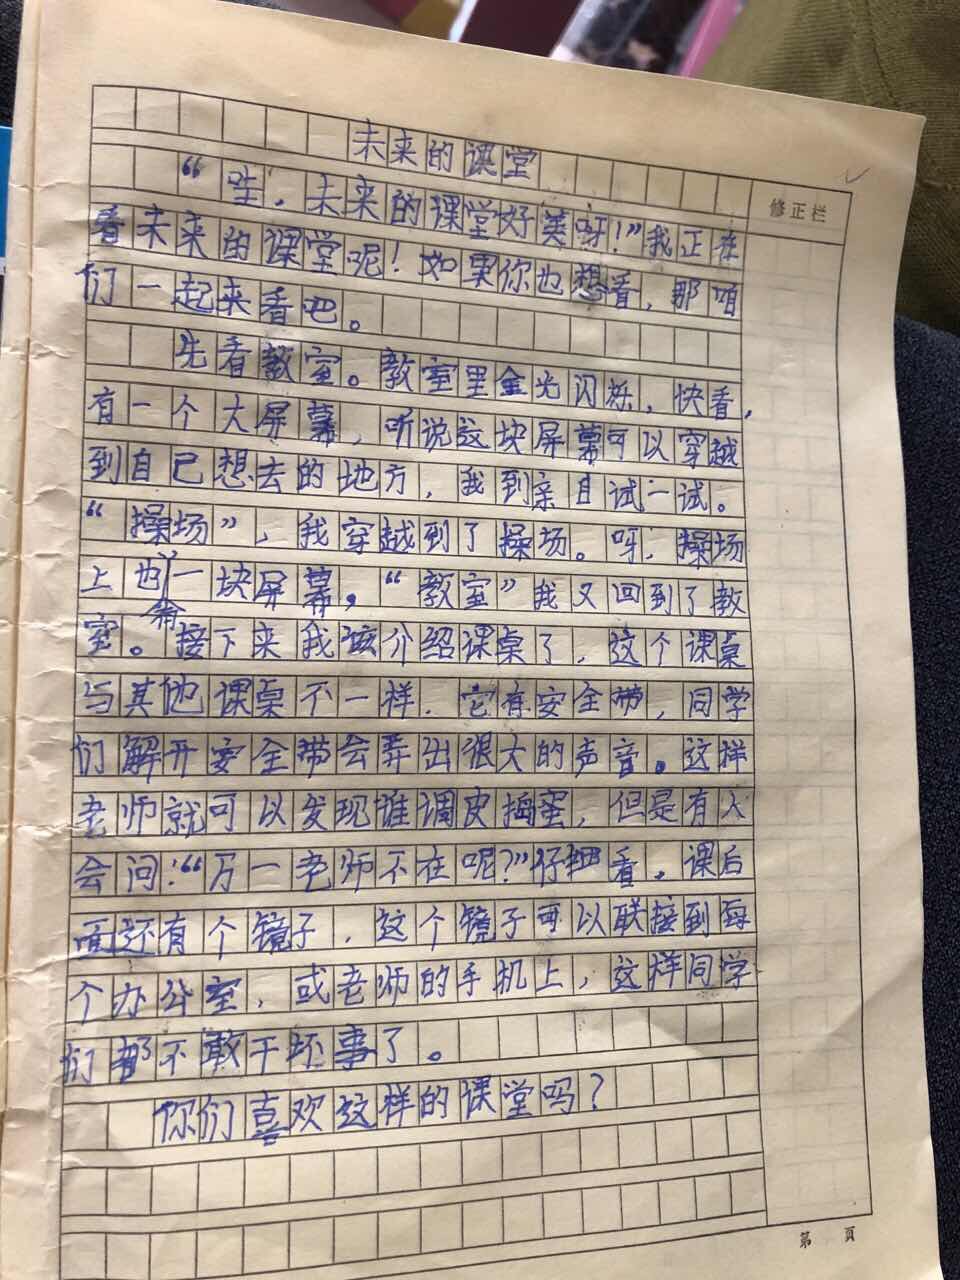 未来的课堂
修正栏
“哇，未来的课堂好美呀！”我正在
看未来的课堂呢！如果你也想看，那咱
们一起来看吧。
先看教室。教室里金光闪烁，快看，
有一个大屏幕，听说这块屏幕可以穿越
到自己想去的地方，我到亲自试一试。
“操场”，我穿越到了操场。呀，操场
上也有一块屏幕，“教室”我又回到了教
室。接下来我该介绍课桌了，这个课桌
与其他课桌不一样，它有安全带，同学
们解开安全带会弄出很大的声音。这样
老师就可以发现谁调皮捣蛋，但是有人
会问：“万一老师不在呢？”仔细看，课后
面还有个镜子，这个镜子可以联接到每
个办公室，或老师的手机上，这样同学
们都不敢干坏事了。
你们喜欢这样的课堂吗？
第 页